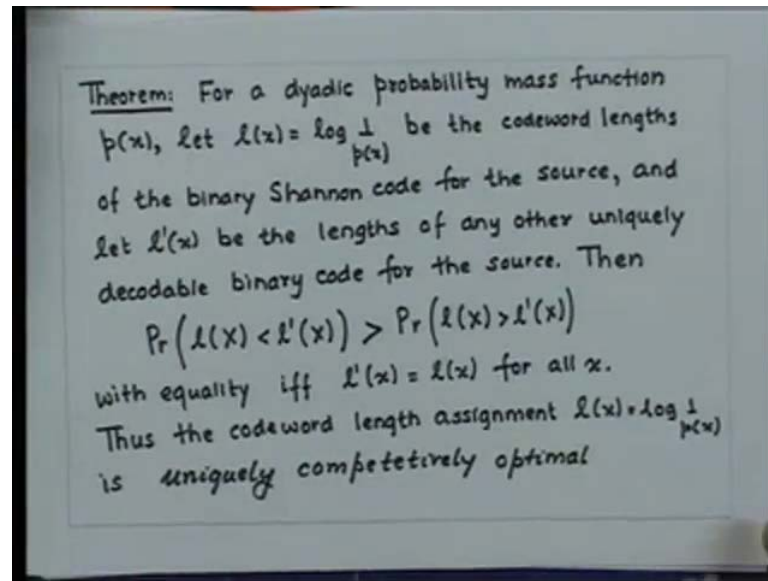 Theorem: For a dyadic probability mass function
p(x), let l(x) = log 1/p(x) be the codeword lengths
of the binary Shannon code for the source, and
let l'(x) be the lengths of any other uniquely
decodable binary code for the source. Then
Pr(l(X) < l'(X)) > Pr(l(X) > l'(X))
with equality iff l'(x) = l(x) for all x.
Thus the codeword length assignment l(x) = log 1/p(x)
is uniquely competetively optimal